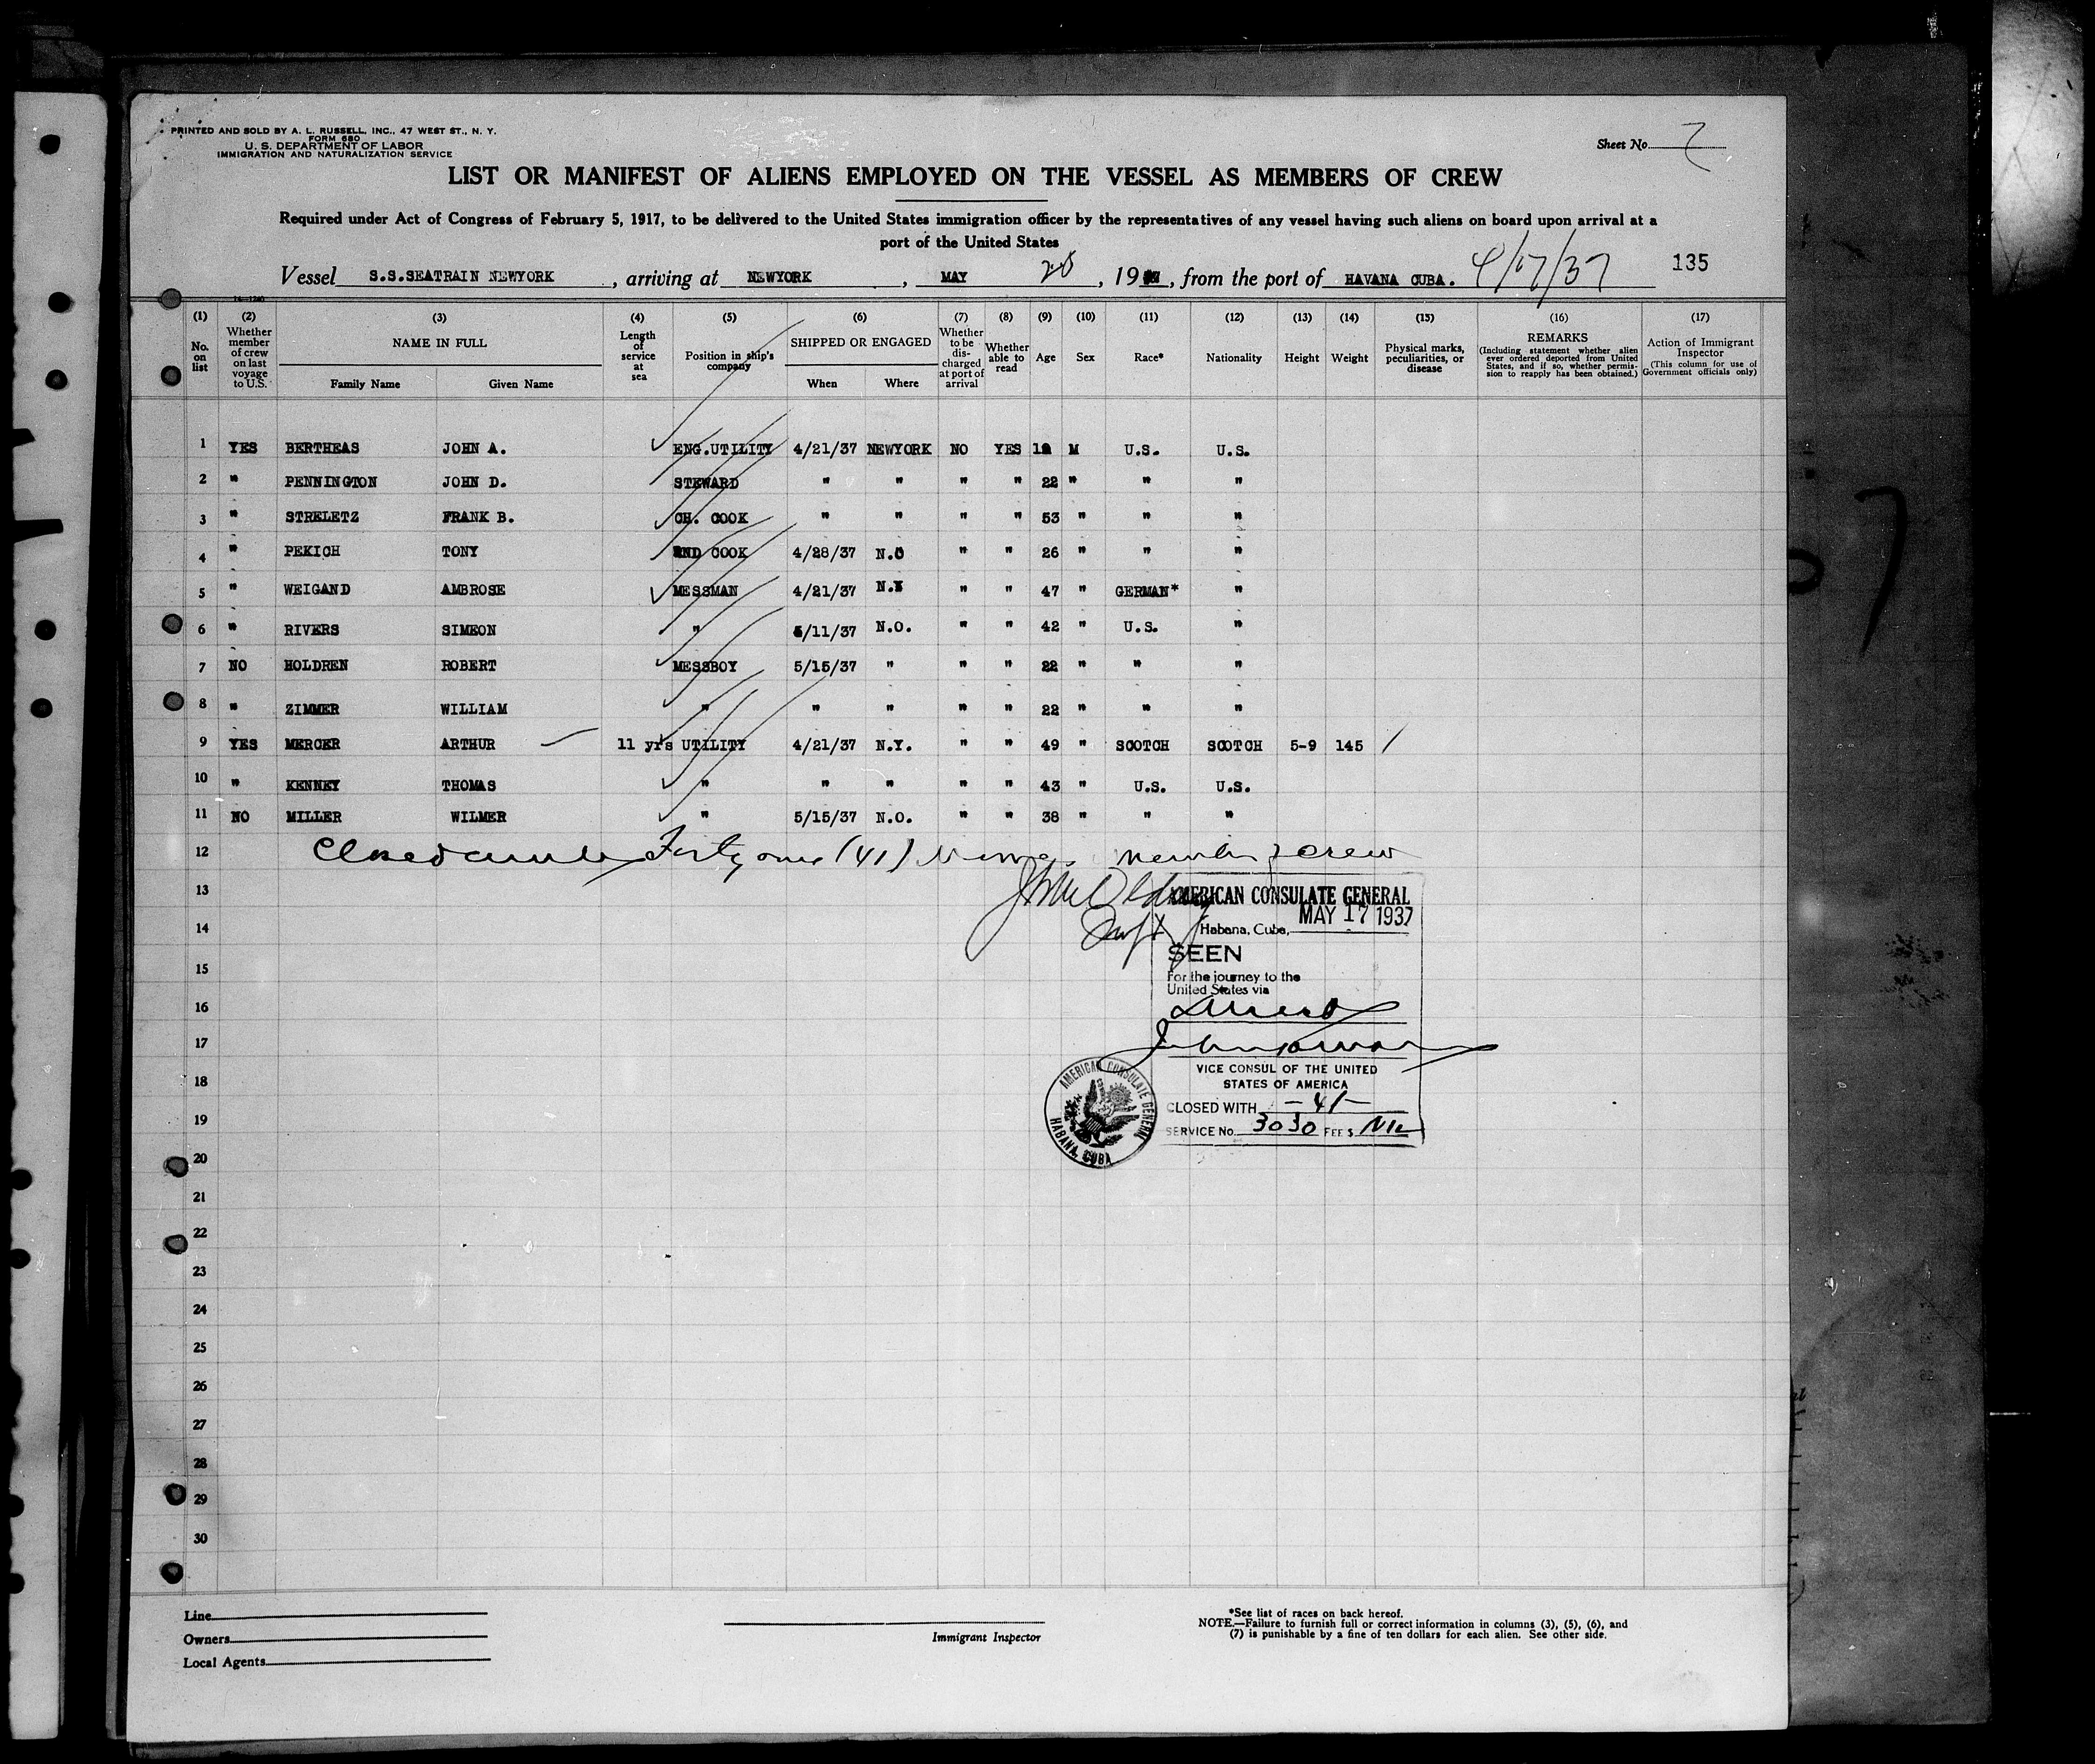 PRINTED AND SOLD BY A. L. RUSSELL, INC., 47 WEST ST., N. Y.
FORM 680
U. S. DEPARTMENT OF LABOR
IMMIGRATION AND NATURALIZATION SERVICE
Sheet No.
LIST OR MANIFEST OF ALIENS EMPLOYED ON THE VESSEL AS MEMBERS OF CREW
Required under Act of Congress of February 5, 1917, to be delivered to the United States immigration officer by the representatives of any vessel having such aliens on board upon arrival at a
port of the United States
Vessel S.S.SEATRAIN NEWYORK, arriving at NEWYORK, MAY 20, 19, from the port of HAVANA CUBA. 135
(1) (2) (3) (4) (5) (6) (7) (8) (9) (10) (11) (12) (13) (14) (15) (16) (17)
No. on list
Whether member of crew on last voyage to U.S.
NAME IN FULL
Family Name Given Name
Length of service at sea
Position in ship's company
SHIPPED OR ENGAGED
When Where
Whether to be discharged at port of arrival
Whether able to read
Age
Sex
Race*
Nationality
Height
Weight
Physical marks, peculiarities, or disease
REMARKS
(Including statement whether alien ever ordered deported from United States, and if so, whether permission to reapply has been obtained.)
Action of Immigrant Inspector
(This column for use of Government officials only)
1 YES BERTHEAS JOHN A. ENG.UTILITY 4/21/37 NEWYORK NO YES M U.S. U.S.
2 " PENNINGTON JOHN D. STEWARD " " " " 22 " " "
3 " STRELETZ FRANK B. CH. COOK " " " " 53 " " "
4 " PEKICH TONY 2ND COOK 4/28/37 N.O " " 26 " " "
5 " WEIGAND AMBROSE MESSMAN 4/21/37 N.Y " " 47 " GERMAN* "
6 " RIVERS SIMEON " 5/11/37 N.O. " " 42 " U.S. "
7 NO HOLDREN ROBERT MESSBOY 5/15/37 " " " 22 " " "
8 " ZIMMER WILLIAM " " " " " 22 " " "
9 YES MERCER ARTHUR 11 yrs UTILITY 4/21/37 N.Y. " " 49 " SCOTCH SCOTCH 5-9 145
10 " KENNEY THOMAS " " " " " 43 " U.S. U.S.
11 NO MILLER WILMER " 5/15/37 N.O. " " 38 " " "
12 Closed Forty one (41) members crew
13
AMERICAN CONSULATE GENERAL
MAY 17 1937
14
Habana, Cuba,
SEEN
15
For the journey to the
United States via
16
17
VICE CONSUL OF THE UNITED
STATES OF AMERICA
18
CLOSED WITH -41-
19
SERVICE No. 3030 FEE $
AMERICAN CONSULATE GENERAL
HABANA, CUBA
20
21
22
23
24
25
26
27
28
29
30
Line
Owners
Local Agents
Immigrant Inspector
*See list of races on back hereof.
NOTE.—Failure to furnish full or correct information in columns (3), (5), (6), and
(7) is punishable by a fine of ten dollars for each alien. See other side.